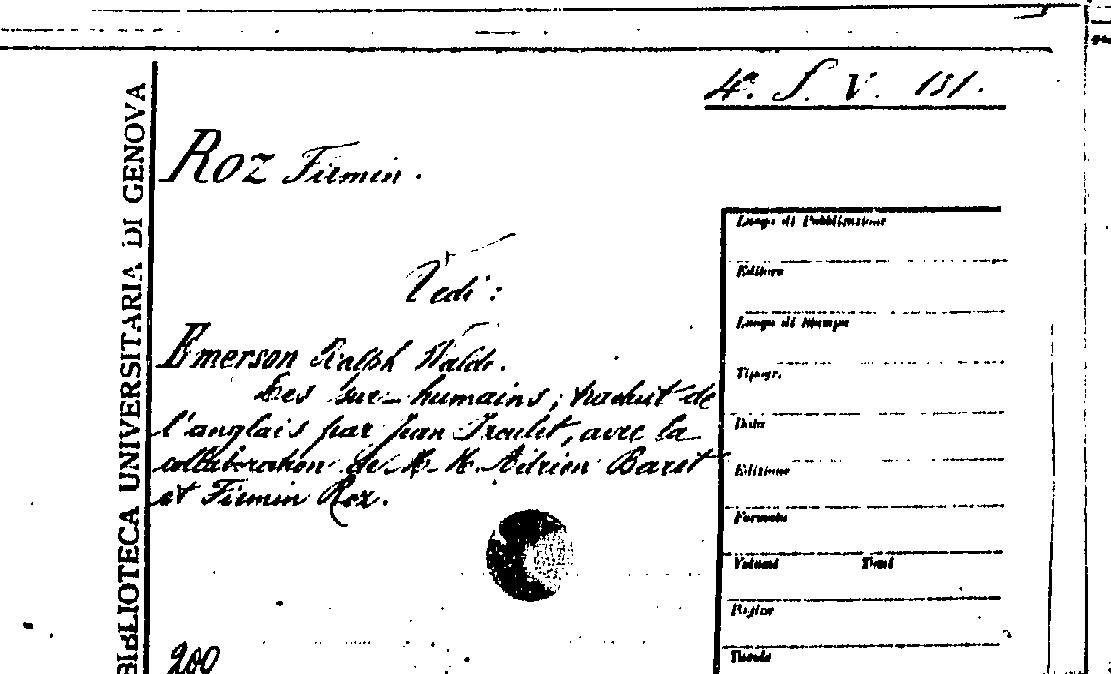 4ª. S. V. 131.
BIBLIOTECA UNIVERSITARIA DI GENOVA
Roz Firmin.
Vedi:
Emerson Ralph Waldo.
Les sur-humains, traduit de
l'anglais par Jean Izoulet, avec la
collaboration de M. M. Adrien Baret
et Firmin Roz.
200
Luogo di Pubblicazione
Editore
Luogo di Stampa
Tipogr.
Data
Edizione
Formato
Volumi Tomi
Pagine
Tavole